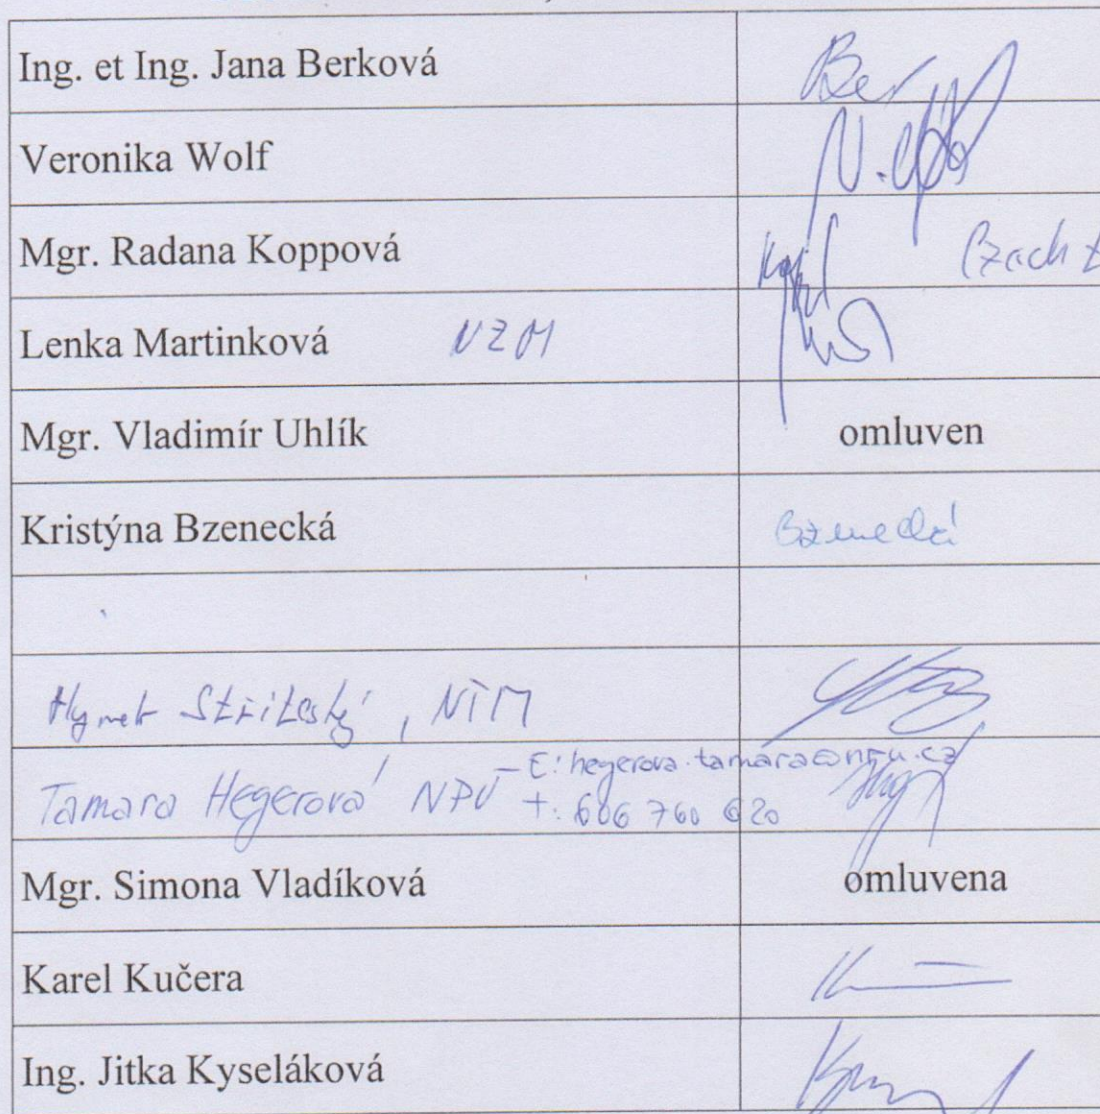 Ing. et Ing. Jana Berková
Veronika Wolf
Mgr. Radana Koppová
Lenka Martinková NZM
Mgr. Vladimír Uhlík omluven
Kristýna Bzenecká Bzenecká
Hynek Stříteský, NTM
Tamara Hegerová NPÚ - E: hegerova.tamara@npu.cz
T: 606 760 620
Mgr. Simona Vladíková omluvena
Karel Kučera
Ing. Jitka Kyseláková